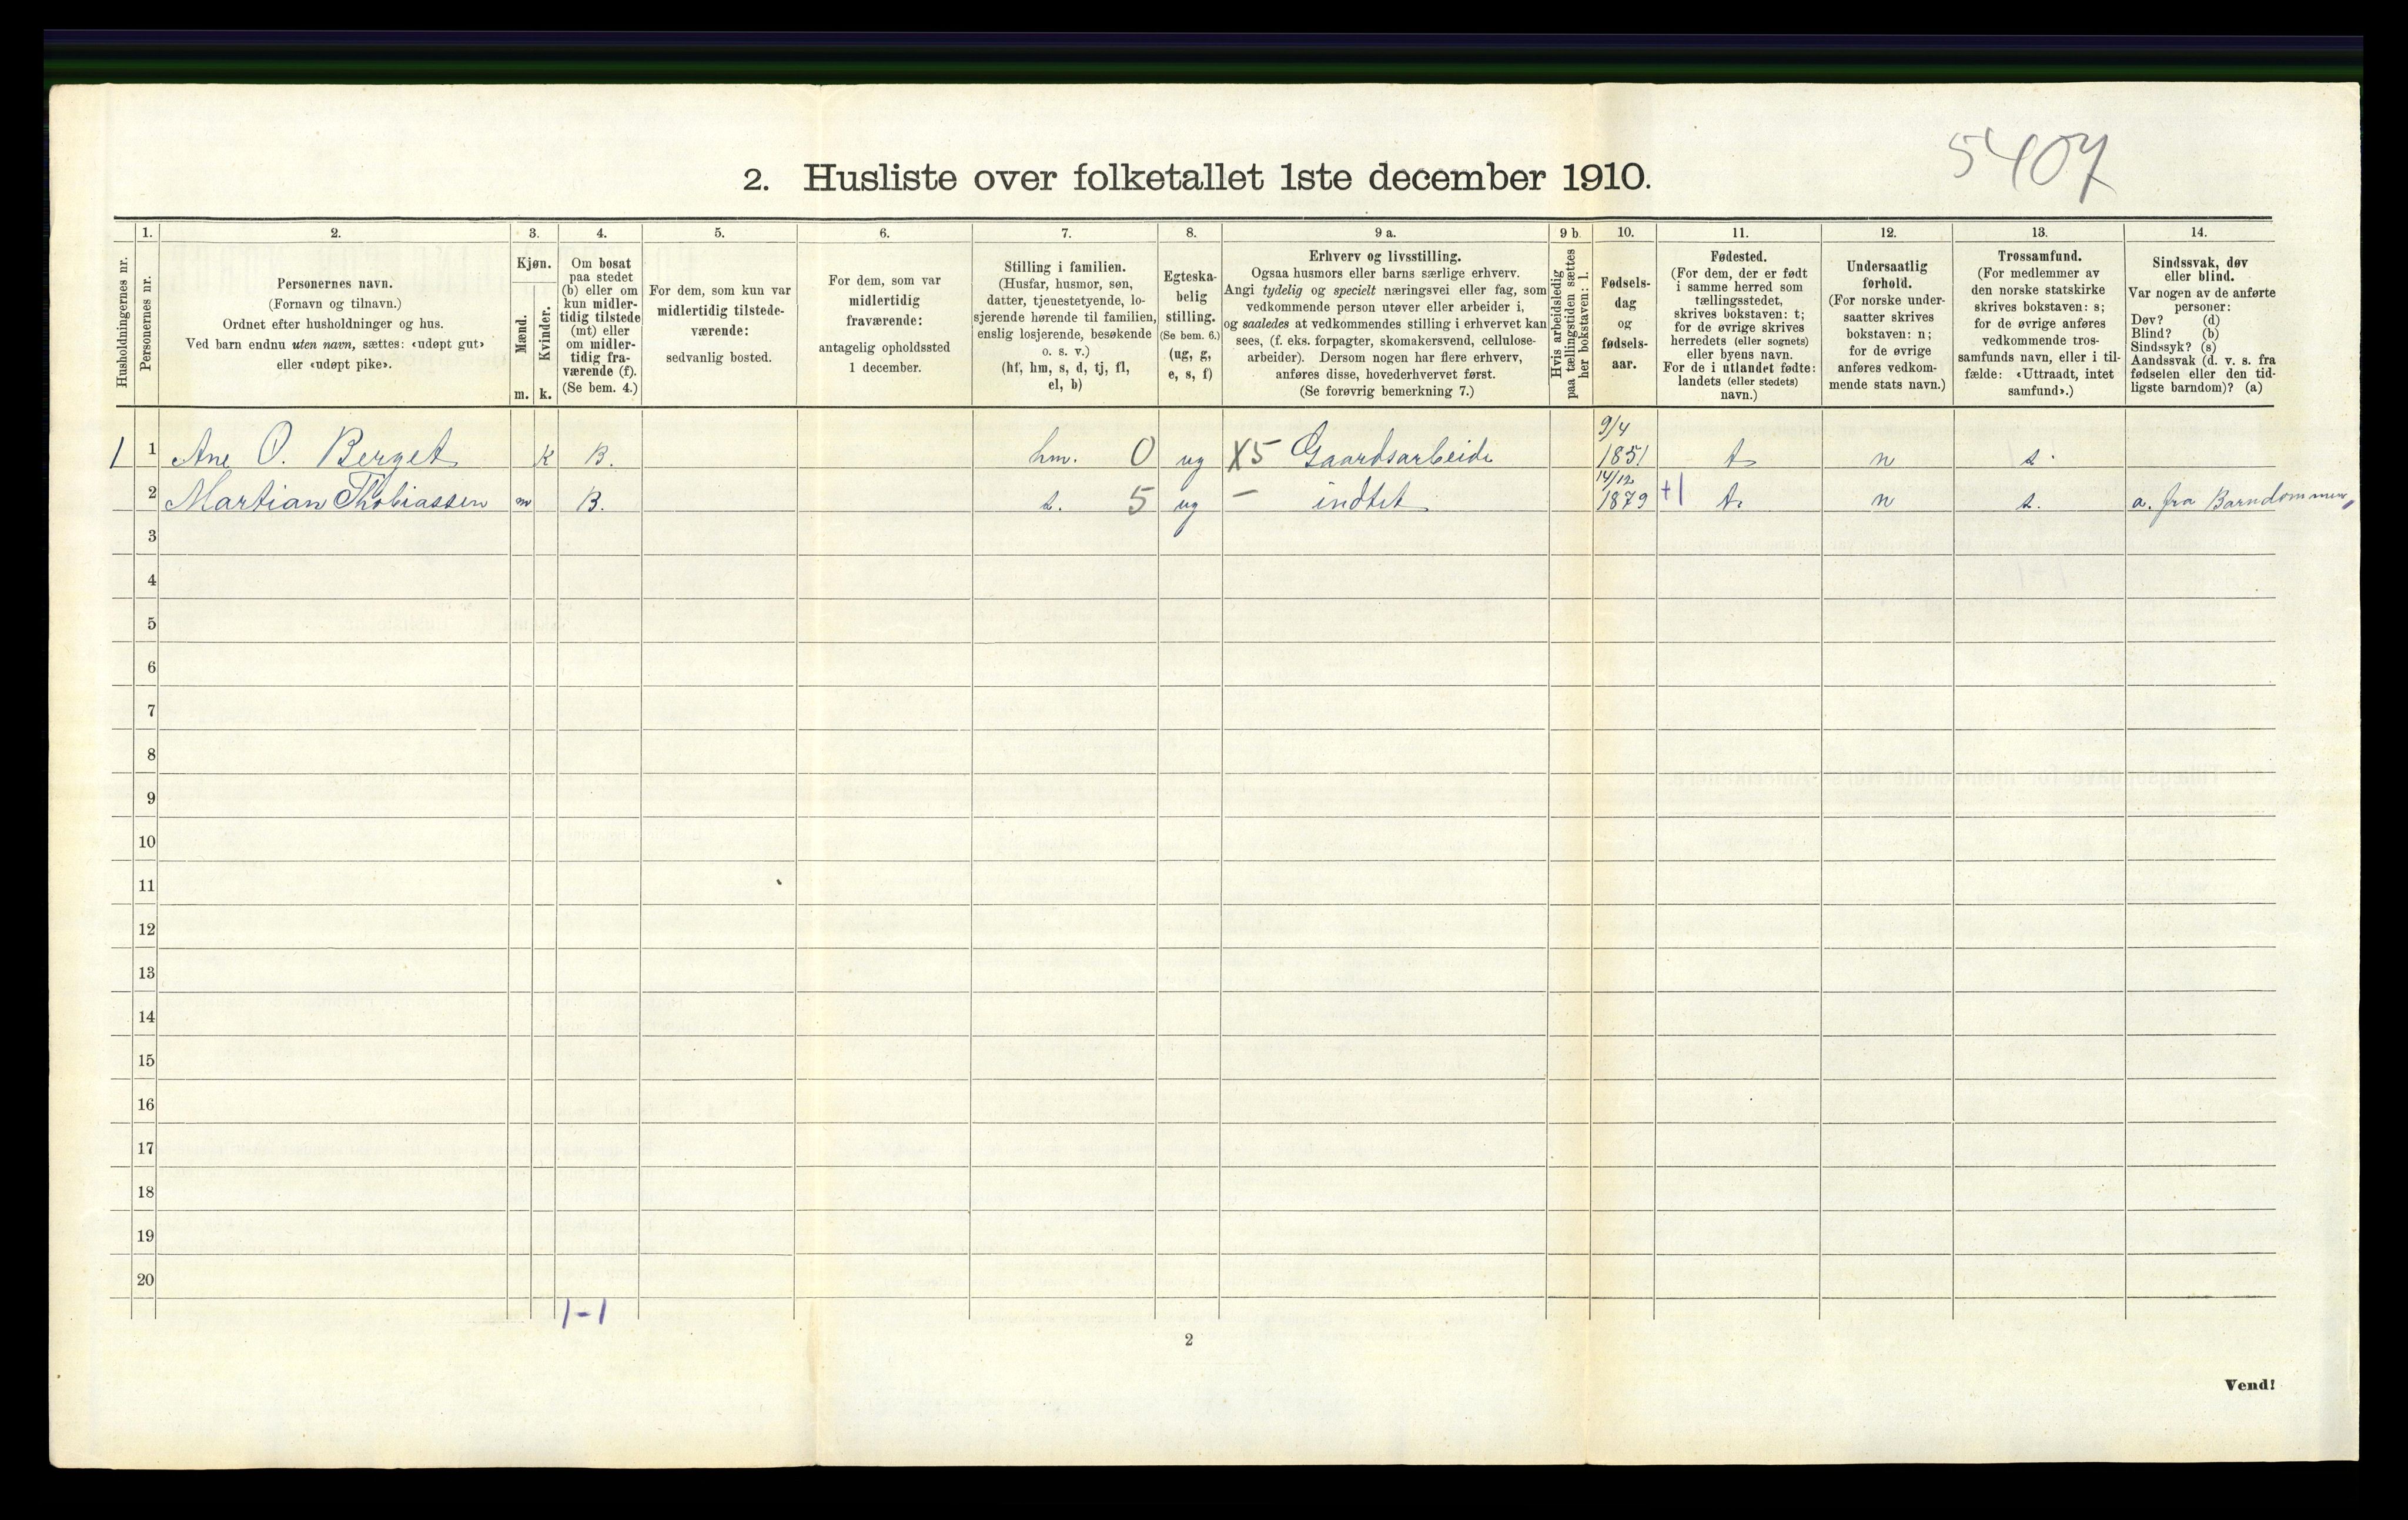 5407
2. Husliste over folketallet 1ste december 1910.
Husholdningernes nr.
1.
Personernes nr.
2.
Personernes navn.
(Fornavn og tilnavn.)
Ordnet efter husholdninger og hus.
Ved barn endnu uten navn, sættes: «udøpt gut»
eller «udøpt pike».
3.
Kjøn.
Mænd.
Kvinder.
m. k.
4.
Om bosat
paa stedet
(b) eller om
kun midler-
tidig tilstede
(mt) eller
om midler-
tidig fra-
værende (f).
(Se bem. 4.)
5.
For dem, som kun var
midlertidig tilstede-
værende:
sedvanlig bosted.
6.
For dem, som var
midlertidig
fraværende:
antagelig opholdssted
1 december.
7.
Stilling i familien.
(Husfar, husmor, søn,
datter, tjenestetyende, lo-
sjerende hørende til familien,
enslig losjerende, besøkende
o. s. v.)
(hf, hm, s, d, tj, fl,
el, b)
8.
Egteska-
belig
stilling.
(Se bem. 6.)
(ug, g,
e, s, f)
9 a.
Erhverv og livsstilling.
Ogsaa husmors eller barns særlige erhverv.
Angi tydelig og specielt næringsvei eller fag, som
vedkommende person utøver eller arbeider i,
og saaledes at vedkommendes stilling i erhvervet kan
sees, (f. eks. forpagter, skomakersvend, cellulose-
arbeider). Dersom nogen har flere erhverv,
anføres disse, hovederhvervet først.
(Se forøvrig bemerkning 7.)
9 b.
Hvis arbeidsledig
paa tællingstiden sættes
her bokstaven: l.
10.
Fødsels-
dag
og
fødsels-
aar.
11.
Fødested.
(For dem, der er født
i samme herred som
tællingsstedet,
skrives bokstaven: t;
for de øvrige skrives
herredets (eller sognets)
eller byens navn.
For de i utlandet fødte:
landets (eller stedets)
navn.)
12.
Undersaatlig
forhold.
(For norske under-
saatter skrives
bokstaven: n;
for de øvrige
anføres vedkom-
mende stats navn.)
13.
Trossamfund.
(For medlemmer av
den norske statskirke
skrives bokstaven: s;
for de øvrige anføres
vedkommende tros-
samfunds navn, eller i til-
fælde: «Uttraadt, intet
samfund».)
14.
Sindssvak, døv
eller blind.
Var nogen av de anførte
personer:
Døv? (d)
Blind? (b)
Sindssyk? (s)
Aandssvak (d. v. s. fra
fødselen eller den tid-
ligste barndom)? (a)
1 1 Ane O. Berget k B. hm. 0 ug X5 Gaardsarbeide 9/4 1851 t n s.
2 Martian Thobiassen m B. s. 5 ug – indtet 14/12 1879 +1 t. n s. a. fra Barndommen
3
4
5
6
7
8
9
10
11
12
13
14
15
16
17
18
19
20
1-1
2
Vend!